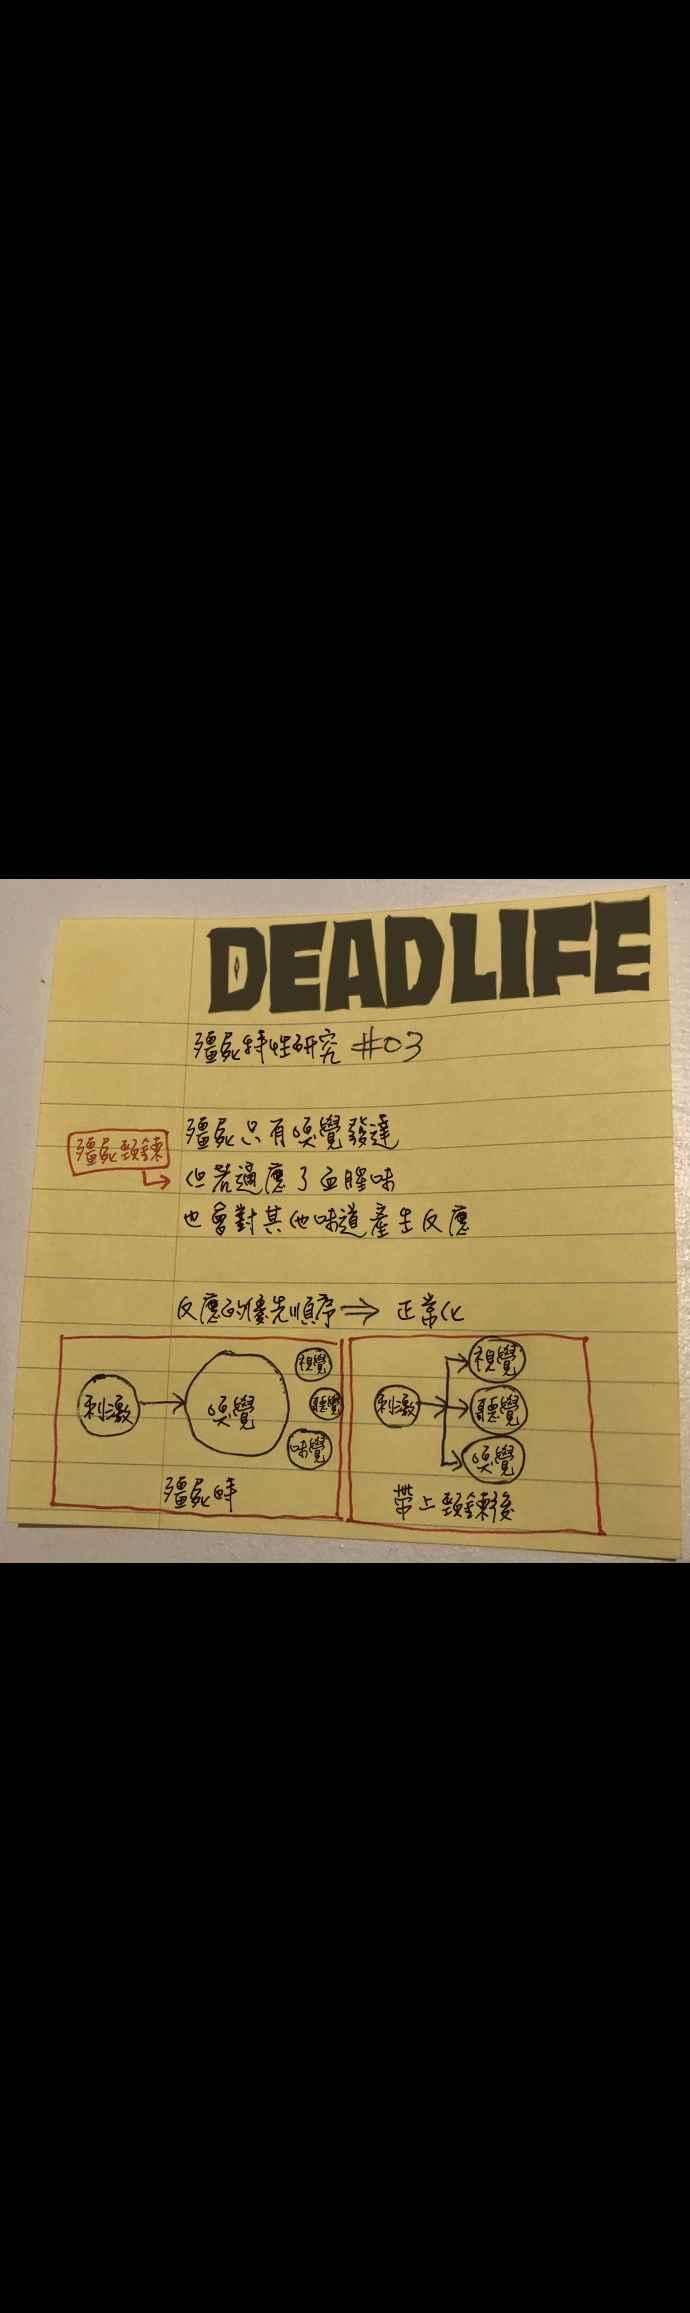 DEADLIFE
殭屍特性研究 #03
殭屍只有嗅覺發達
殭屍頸鍊
但若適應了血腥味
也會對其他味道產生反應
反應的優先順序⇒ 正常化
刺激
嗅覺
視覺
聽覺
味覺
殭屍時
刺激
視覺
聽覺
嗅覺
帶上頸鍊後